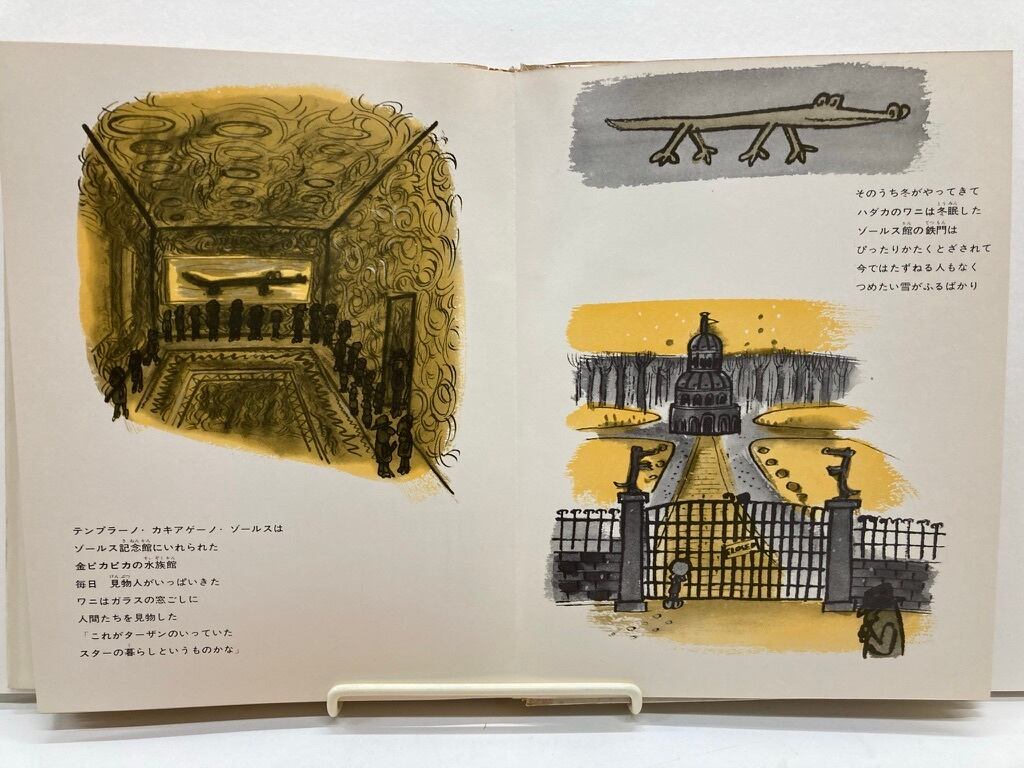 テンプラーノ・カキアゲーノ・ゾールスは
ゾールス記念館にいれられた
金ピカピカの水族館
毎日　見物人がいっぱいきた
ワニはガラスの窓ごしに
人間たちを見物した
「これがターザンのいっていた
スターの暮らしというものかな」
そのうち冬がやってきて
ハダカのワニは冬眠した
ゾールス館の鉄門は
ぴったりかたくとざされて
今ではたずねる人もなく
つめたい雪がふるばかり
CLOSED